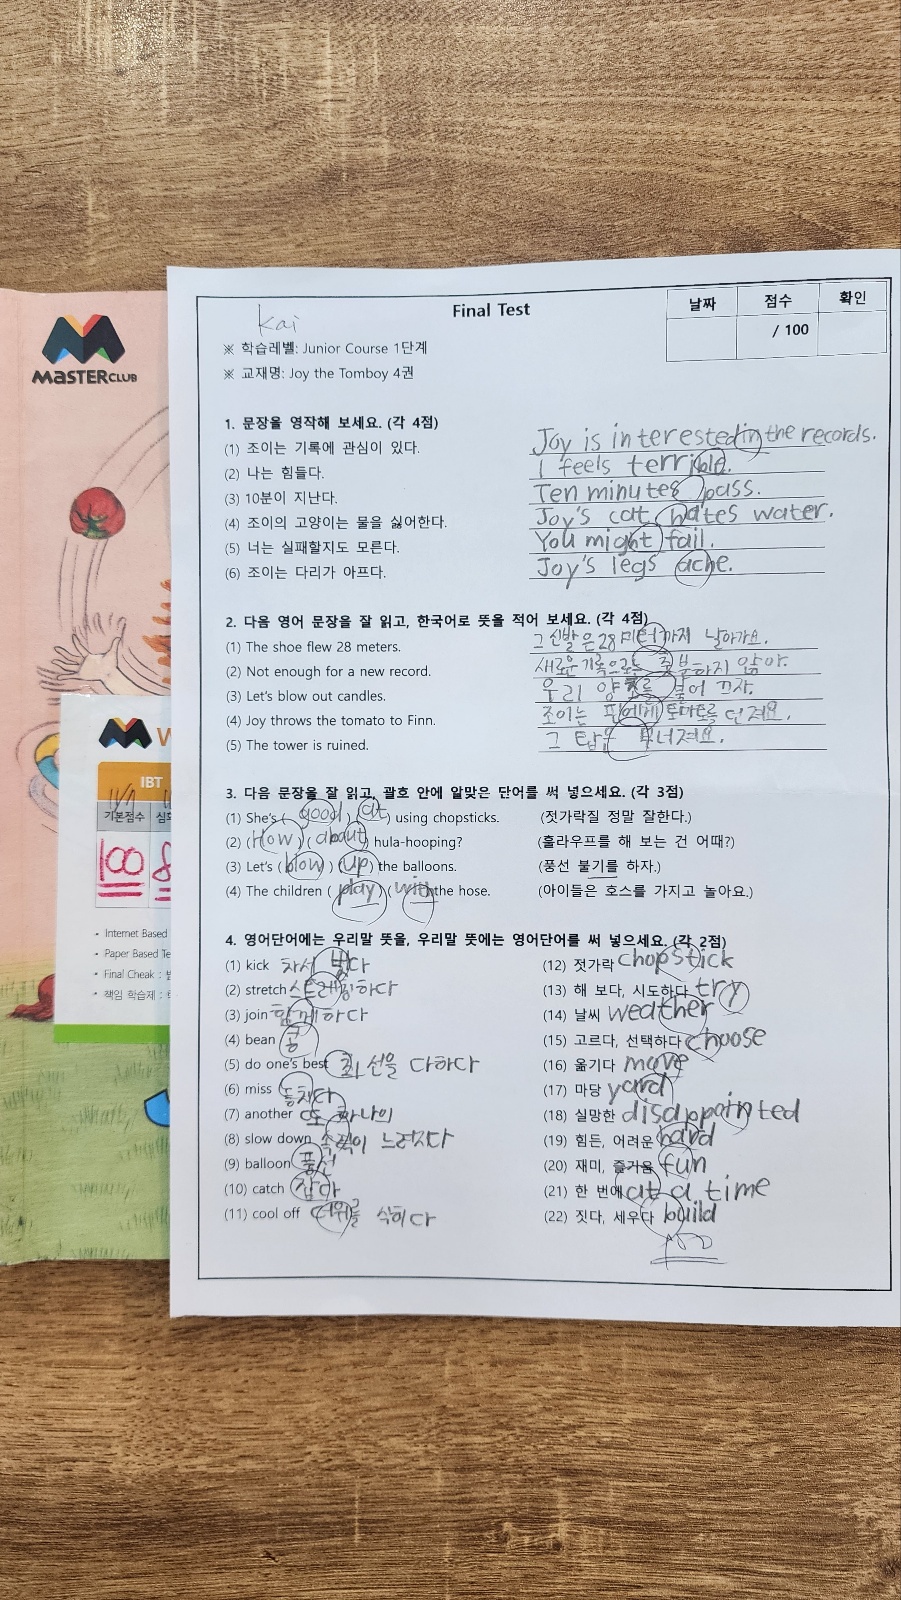 Final Test
날짜 점수 확인
/ 100
Kai
※ 학습레벨: Junior Course 1단계
※ 교재명: Joy the Tomboy 4권
1. 문장을 영작해 보세요. (각 4점)
(1) 조이는 기록에 관심이 있다. Joy is interested in the records.
(2) 나는 힘들다. I feels terrible.
(3) 10분이 지난다. Ten minutes pass.
(4) 조이의 고양이는 물을 싫어한다. Joy's cat hates water.
(5) 너는 실패할지도 모른다. You might fail.
(6) 조이는 다리가 아프다. Joy's legs ache.
2. 다음 영어 문장을 잘 읽고, 한국어로 뜻을 적어 보세요. (각 4점)
(1) The shoe flew 28 meters. 그 신발은 28미터까지 날아가요.
(2) Not enough for a new record. 새로운 기록으로는 충분하지 않아.
(3) Let's blow out candles. 우리 양초를 불어 끄자.
(4) Joy throws the tomato to Finn. 조이는 핀에게 토마토를 던져요.
(5) The tower is ruined. 그 탑은 무너져요.
3. 다음 문장을 잘 읽고, 괄호 안에 알맞은 단어를 써 넣으세요. (각 3점)
(1) She's ( good ) ( at ) using chopsticks. (젓가락질 정말 잘한다.)
(2) (How) (about) hula-hooping? (훌라우프를 해 보는 건 어때?)
(3) Let's (blow) (up) the balloons. (풍선 불기를 하자.)
(4) The children ( play ) (with the hose. (아이들은 호스를 가지고 놀아요.)
4. 영어단어에는 우리말 뜻을, 우리말 뜻에는 영어단어를 써 넣으세요. (각 2점)
(1) kick 차서 벗다
(2) stretch 스트레칭하다
(3) join 함께하다
(4) bean 콩
(5) do one's best 최선을 다하다
(6) miss 놓치다
(7) another 또 하나의
(8) slow down 속력이 느려지다
(9) balloon 풍선
(10) catch 잡다
(11) cool off 더위를 식히다
(12) 젓가락 chopstick
(13) 해 보다, 시도하다 try
(14) 날씨 weather
(15) 고르다, 선택하다 choose
(16) 옮기다 move
(17) 마당 yard
(18) 실망한 disappointed
(19) 힘든, 어려운 hard
(20) 재미, 즐거움 fun
(21) 한 번에 at a time
(22) 짓다, 세우다 build
100
MASTERCLUB
W
IBT
기본점수 심화
100 8
• Internet Based
• Paper Based Te
• Final Cheak :
• 책임 학습제 :